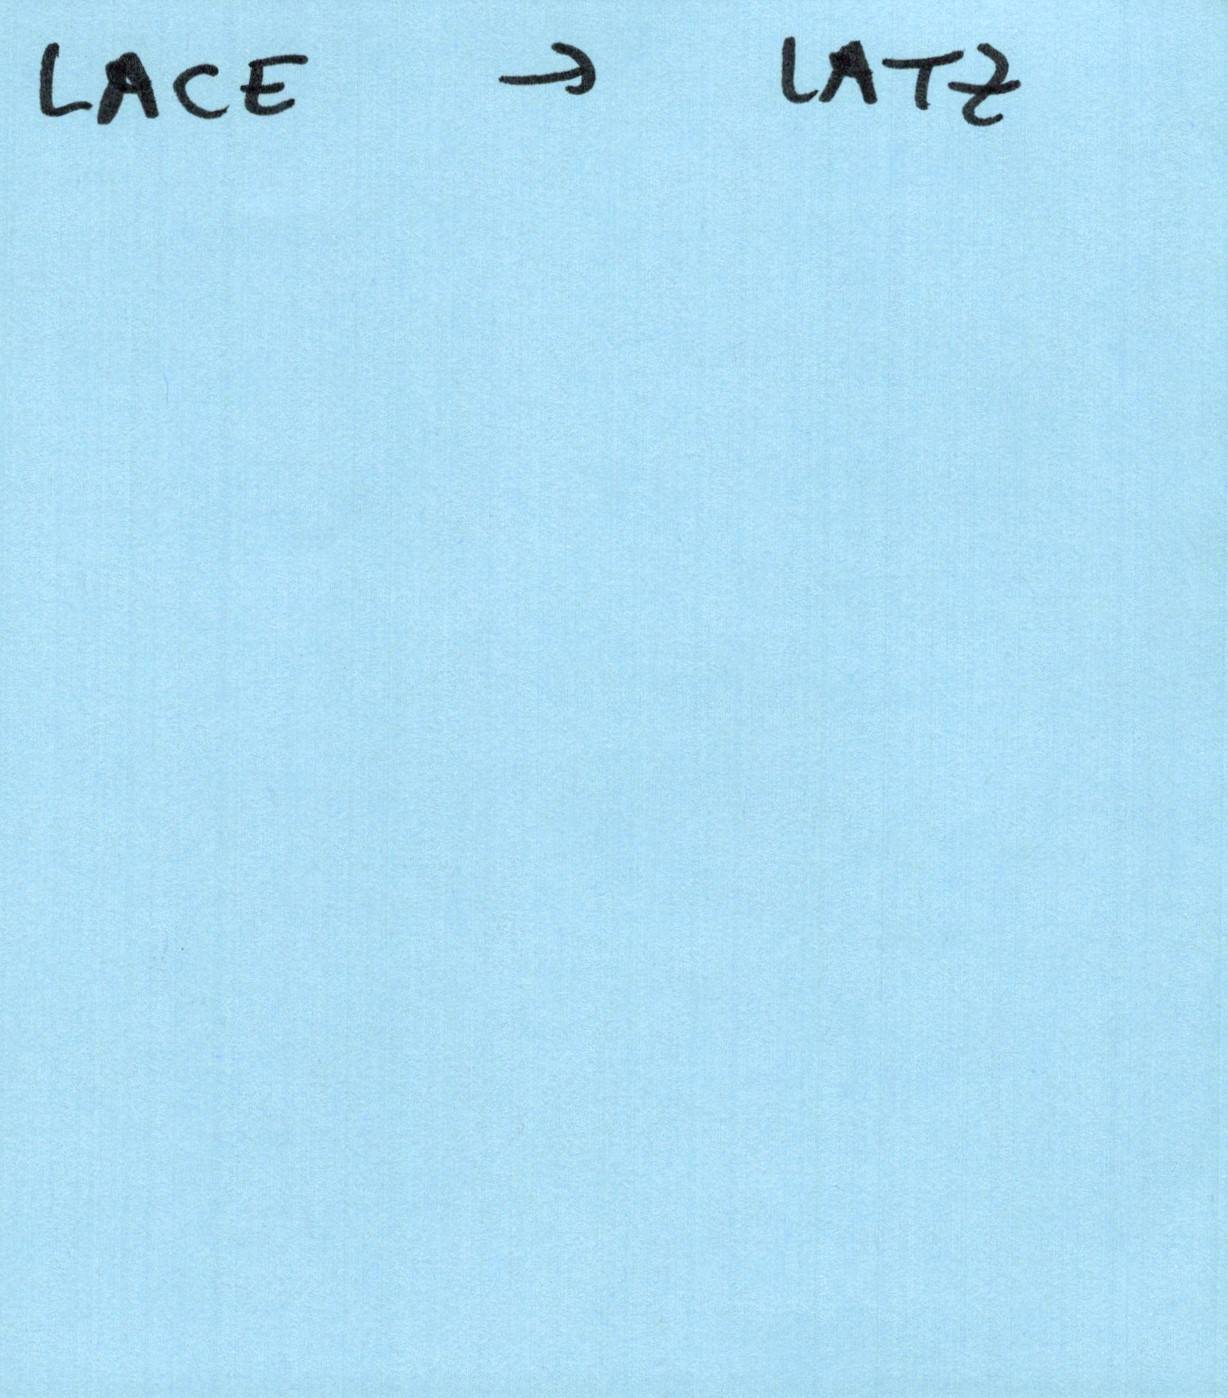 LACE → LATZ